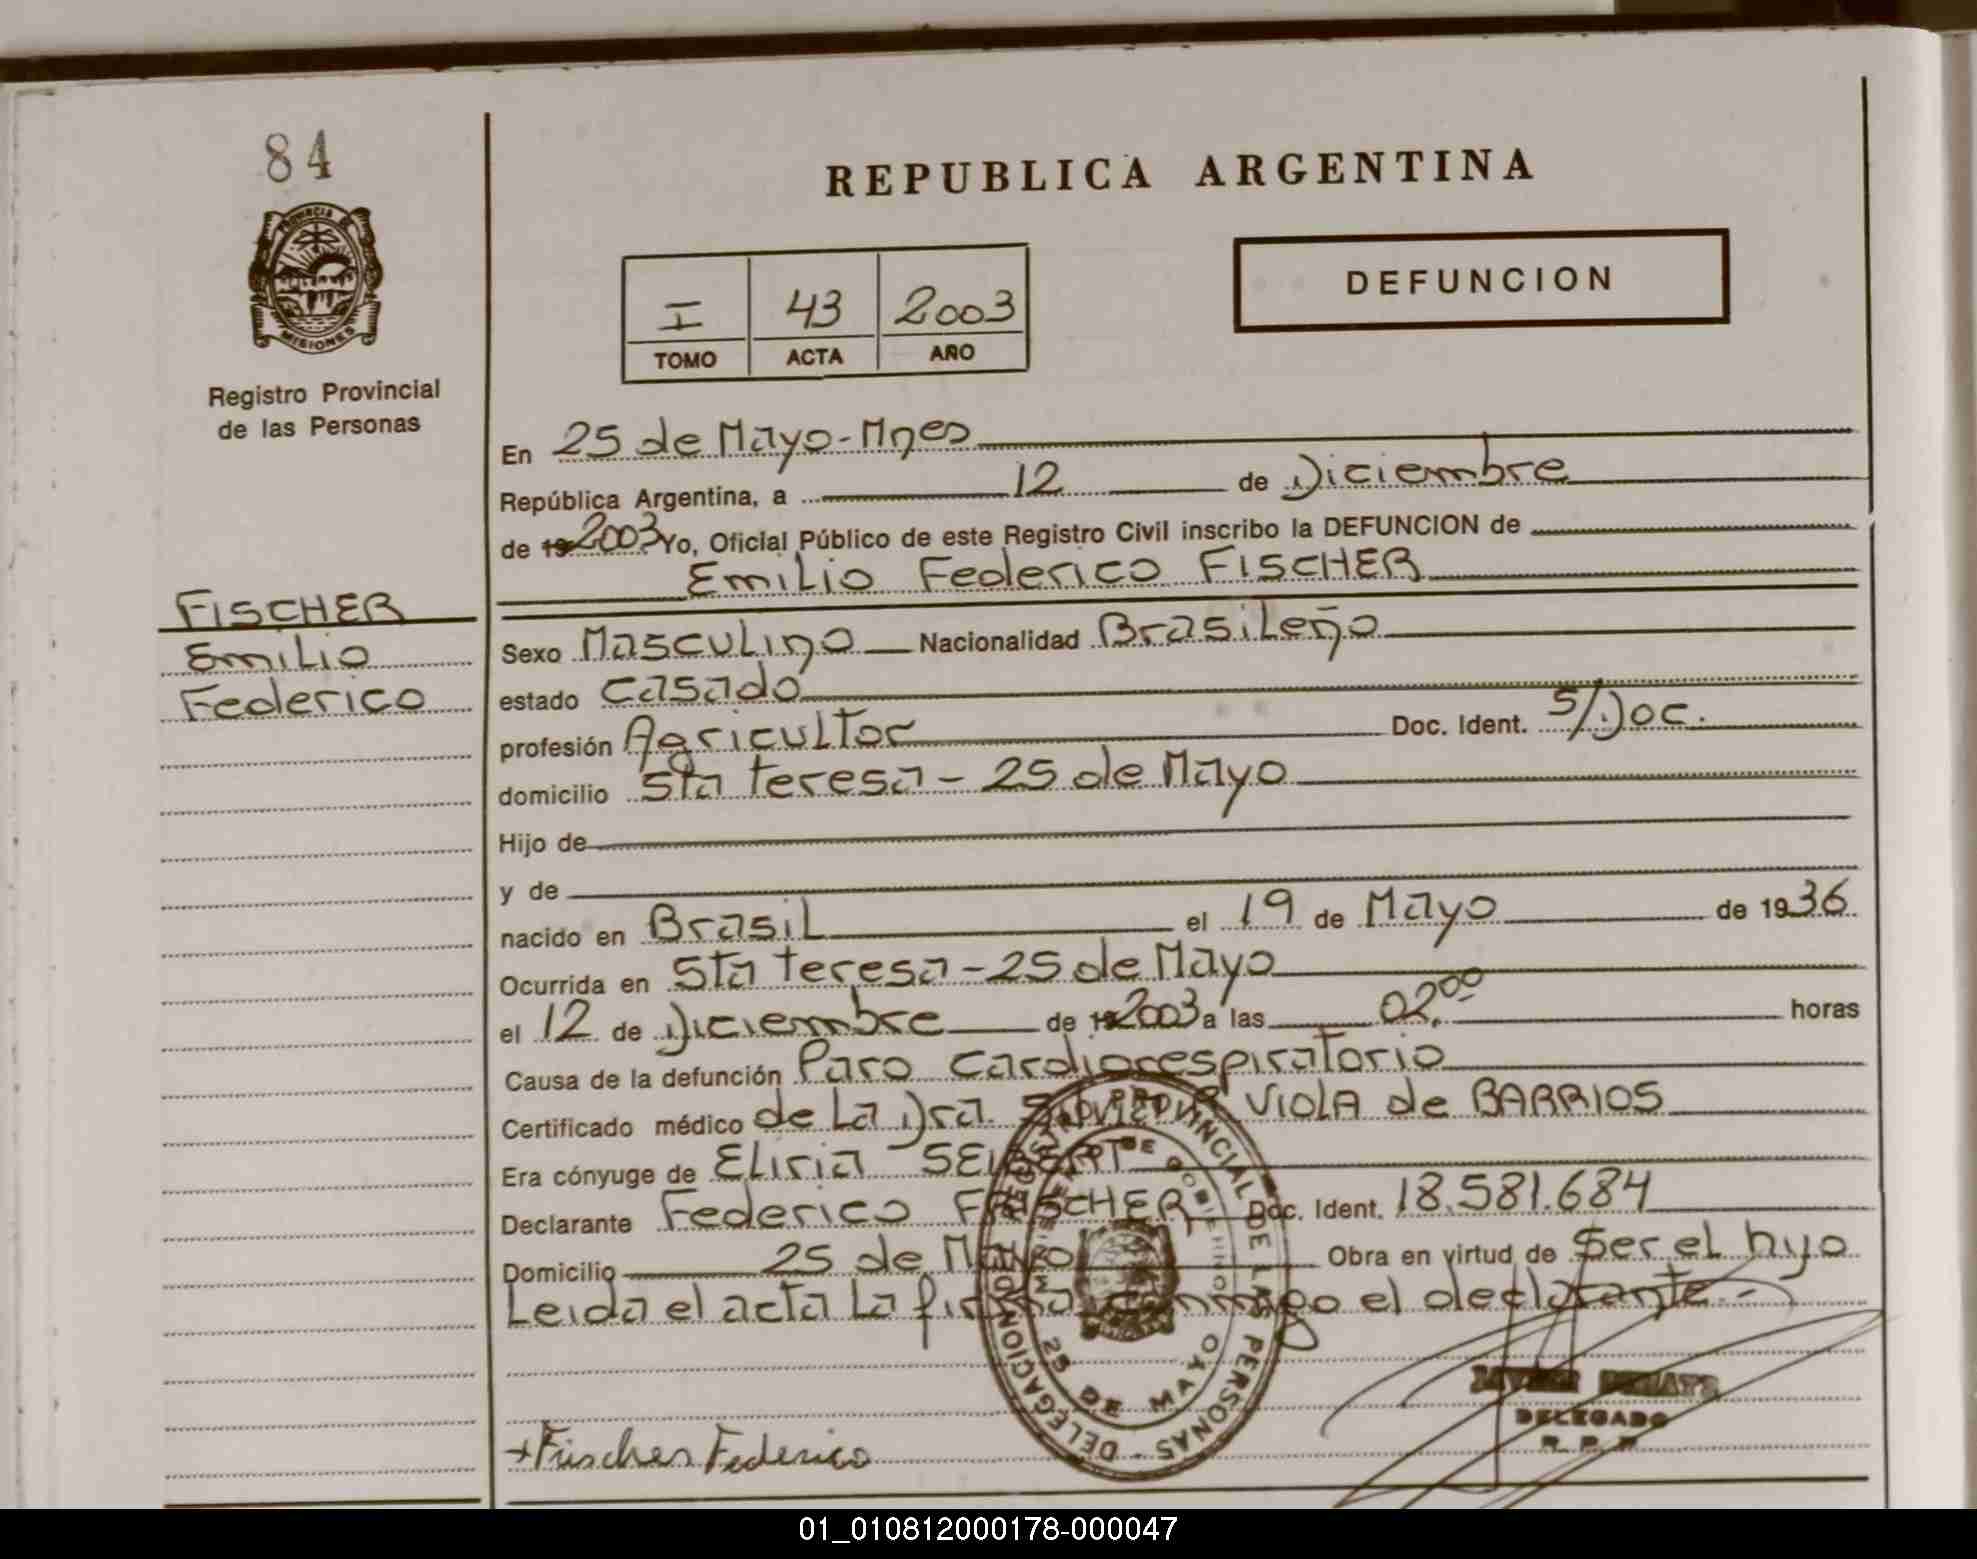 84
PROVINCIA DE
MISIONES
Registro Provincial
de las Personas
FISCHER
Emilio
Federico
REPUBLICA ARGENTINA
I 43 2003
TOMO ACTA AÑO
DEFUNCION
En 25 de Mayo-Mnes
República Argentina, a 12 de Diciembre
de 19 2003 Yo, Oficial Público de este Registro Civil inscribo la DEFUNCION de
Emilio Federico FISCHER
Sexo Masculino Nacionalidad Brasileño
estado casado
profesión Agricultor Doc. Ident. S/Doc.
domicilio Sta teresa - 25 de Mayo
Hijo de
y de
nacido en Brasil el 19 de Mayo de 1936
Ocurrida en Sta teresa - 25 de Mayo
el 12 de Diciembre de 19 2003 a las 02.00 horas
Causa de la defunción Paro cardiorespiratorio
Certificado médico de La Dra. VIOLA de BARRIOS
Era cónyuge de Eliria SEIBERT
Declarante Federico FRISCHER Doc. Ident. 18.581.684
Domicilio 25 de Mayo Obra en virtud de Ser el hijo
Leida el acta La firma conmigo el declarante.-
REGISTRO PROVINCIAL DE LAS PERSONAS - DELEGACION
MINISTERIO DE GOBIERNO
25 DE MAYO
DELEGADO
R. P. P.
+Frischer Federico
01_010812000178-000047